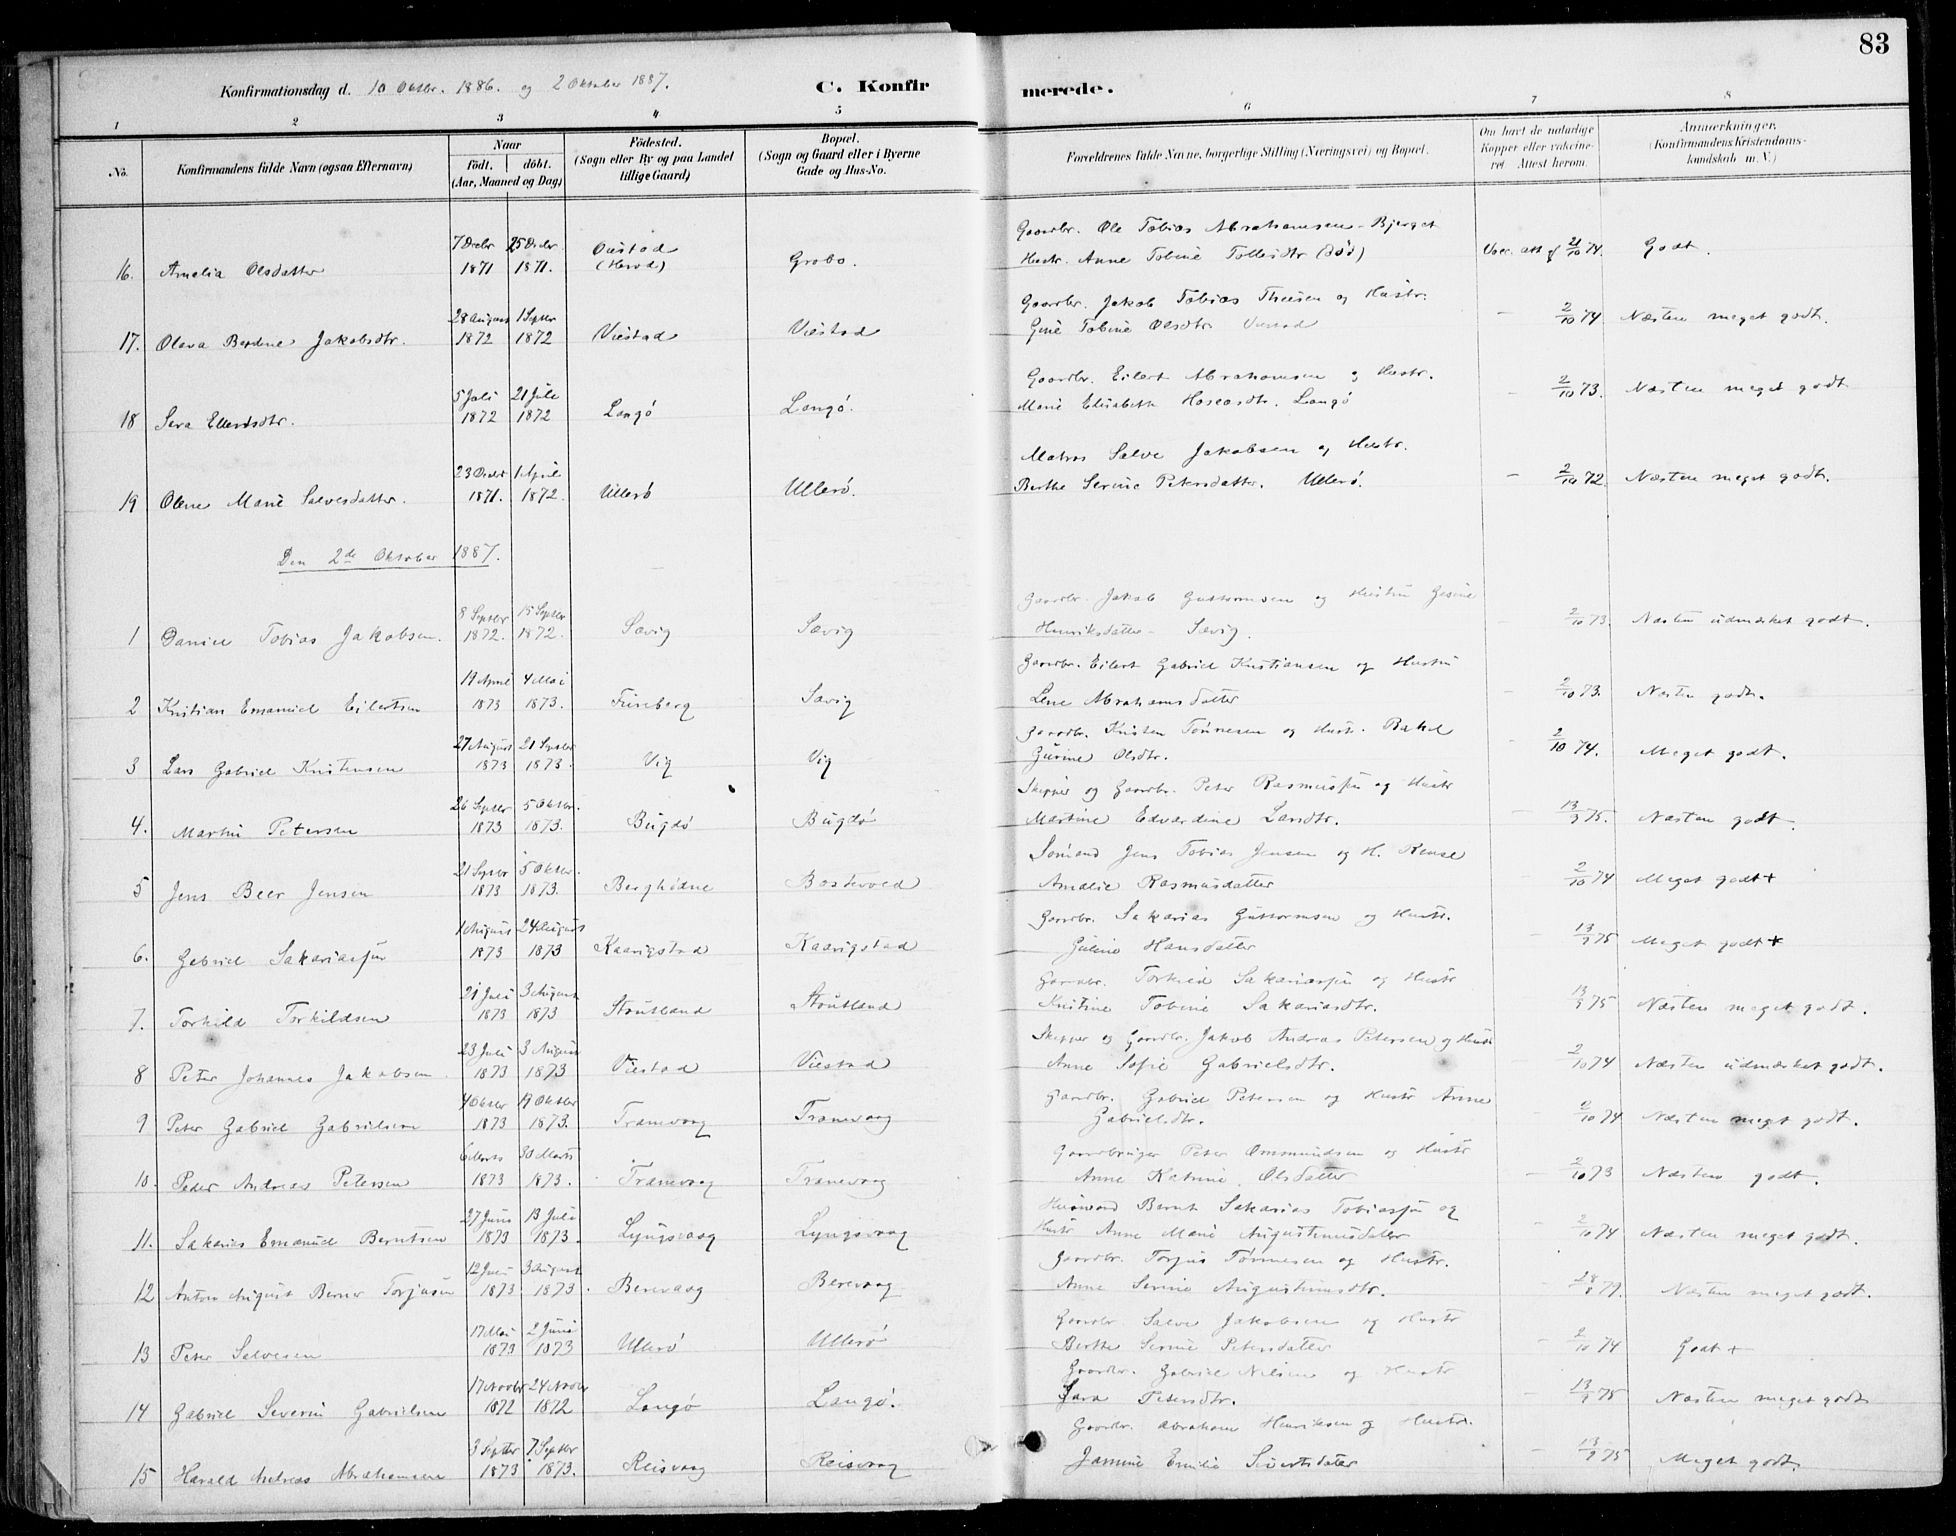 83
Konfirmationsdag d. 10 Oktbr. 1886. og 2 Oktober 1887. C. Konfirmerede.
1 2 3 4 5 6 7 8
No. Konfirmandens fulde Navn (ogsaa Efternavn)
Naar
födt. döbt.
(Aar, Maaned og Dag)
Födested.
(Sogn eller By og paa Landet
tillige Gaard)
Bopæl.
(Sogn og Gaard eller i Byerne
Gade og Hus-No.
Forældrenes fulde Navne, borgerlige Stilling (Næringsvei) og Bopæl.
Om havt de naturlige
Kopper eller vaccine-
ret. Attest herom.
Anmærkninger.
(Konfirmandens Kristendoms-
kundskab m. V.)
Gaardbr. Ole Tobias Abrahamsen Bjerget
7 Decbr 25 Decbr Oiestad
16. Amalia Olsdatter 1871 1871. (Herod) Grobo. Hustr. Anne Tobine Tollesdtr (död) Vacc. att. af 21/10 74. Godt.
Gaardbr. Jakob Tobias Theisen og Hustr.
28 August 1 Septbr
17. Olava Berdine Jakobsdtr. 1872 1872 Viestad Viestad Gine Tobine Olsdtr. Viestad – 2/10 74 Næsten meget godt.
Gaardbr. Eilert Abrahamsen og Hustr.
5 Juli 21 Juli
18 Sera Ellertsdtr. 1872 1872 Langö Langö. Marie Elisabeth Hoseasdtr. Langö – 2/10 73. Næsten meget godt
Matros Salve Jakobsen og Hustr.
23 Decbr 1 April
19 Olene Marie Salvesdatter. 1871. 1872. Ullerö Ullerö. Berthe Serine Petersdatter. Ullerö. – 2/10 72 Næsten meget godt.
Den 2de Oktober 1887.
Gaardbr. Jakob Guttormsen og Hustru Gesine
8 Septbr 15 Septbr
1 Daniel Tobias Jakobsen. 1872. 1872. Sævig Sævig Henriksdatter – Sævig. – 2/10 73. Næsten udmærket godt.
Gaardbr. Eilert Gabriel Kristiansen og Hustru
19 April 4 Mai
2 Kristian Emanuel Eilertsen 1873 1873. Fureberg Sævig Lene Abrahamsdatter – 2/10 73. Næsten godt.
Gaardbr. Kristen Tönnesen og Hustr. Rakel
27 August 21 Septbr
3 Lars Gabriel Kristensen 1873 1873. Vig Vig Gurine Olsdtr. – 2/10 74. Meget godt.
Skipper og Gaardbr. Peter Rasmussen og Hustr
26 Septbr 5 Oktbr.
4. Martin Petersen 1873 1873. Bugdö Bugdö Martine Edvardine Larsdtr. – 13/9 75. Næsten godt.
Sömand Jens Tobias Jensen og H.
21 Septbr 5 Oktbr.
5 Jens Beer Jensen 1873 1873. Amalie Rasmusdatter – 2/10 74 Meget godt +
Gaardbr. Sakarias Guttormsen og Hustr.
1 August 24 August
6. Gabriel Sakariassen 1873 1873 Kaavigstad Kaavigstad Juline Hansdatter – 13/9 75 Meget godt +
Gaardbr. Torkild Sakariassen og Hustr
21 Juli 3 August
7. Torkild Torkildsen 1873 1873 Stoutland Stoutland Kristine Tobine Sakariasdtr. – 13/9 75 Næsten meget godt.
Skipper og Gaardbr. Jakob Andreas Petersen og Hustr
23 Juli 3 August
8 Peter Johannes Jakobsen 1873 1873 Viestad Viestad Anne Sofie Gabrielsdtr. – 2/10 74 Næsten udmærket godt.
Gaardbr. Gabriel Petersen og Hustr Anne
4 Oktbr 19 Oktbr
9 Peter Gabriel Gabrielsen 1873 1873. Tranevaag Tranevaag Gabrielsdtr. 2/10 74 Næsten meget godt.
Gaardbruger Peter Ommundsen og Hustr
6 Marts 30 Marts
10. Peder Andreas Petersen 1873 1873. Tranevaag Tranevaag Anne Katrine Olsdatter – 2/10 73 Næsten godt.
Husmand Bernt Sakarias Tobiassen og
27 Juni 13 Juli
11. Sakarias Emanuel Berntsen 1873 1873. Lyngsvaag Lyngsvaag Hustr Anne Marie Augustinusdatter – 2/10 74 Næsten meget godt.
Gaardbr. Torjus Tönnesen og Hustr.
12 Juli 3 August
12 Anton August Berner Torjusen 1873 1873. Berevaag Berevaag Anne Serine Augustinusdtr. – 28/8 79. Næsten meget godt.
Gaardbr. Salve Jakobsen og Hustr
17 Mai 2 Juni
13 Peter Salvesen 1873 1873 Ullerö Ullerö Berthe Serine Petersdatter – 2/10 74 Godt +
Gaardbr. Gabriel Nilsen og Hustr
17 Novbr 24 Novbr
14 Gabriel Severin Gabrielsen 1872 1872 Langö Langö. Sara Petersdtr. – 13/9 75 Næsten meget godt
Gaardbr. Abraham Henriksen og Hustr.
3 Septbr 7 Septbr
15 Harald Andreas Abrahamsen 1873 1873. Reisvaag Reisvaag Jamine Emilie Sivertsdatter – 13/9 75 Meget godt.